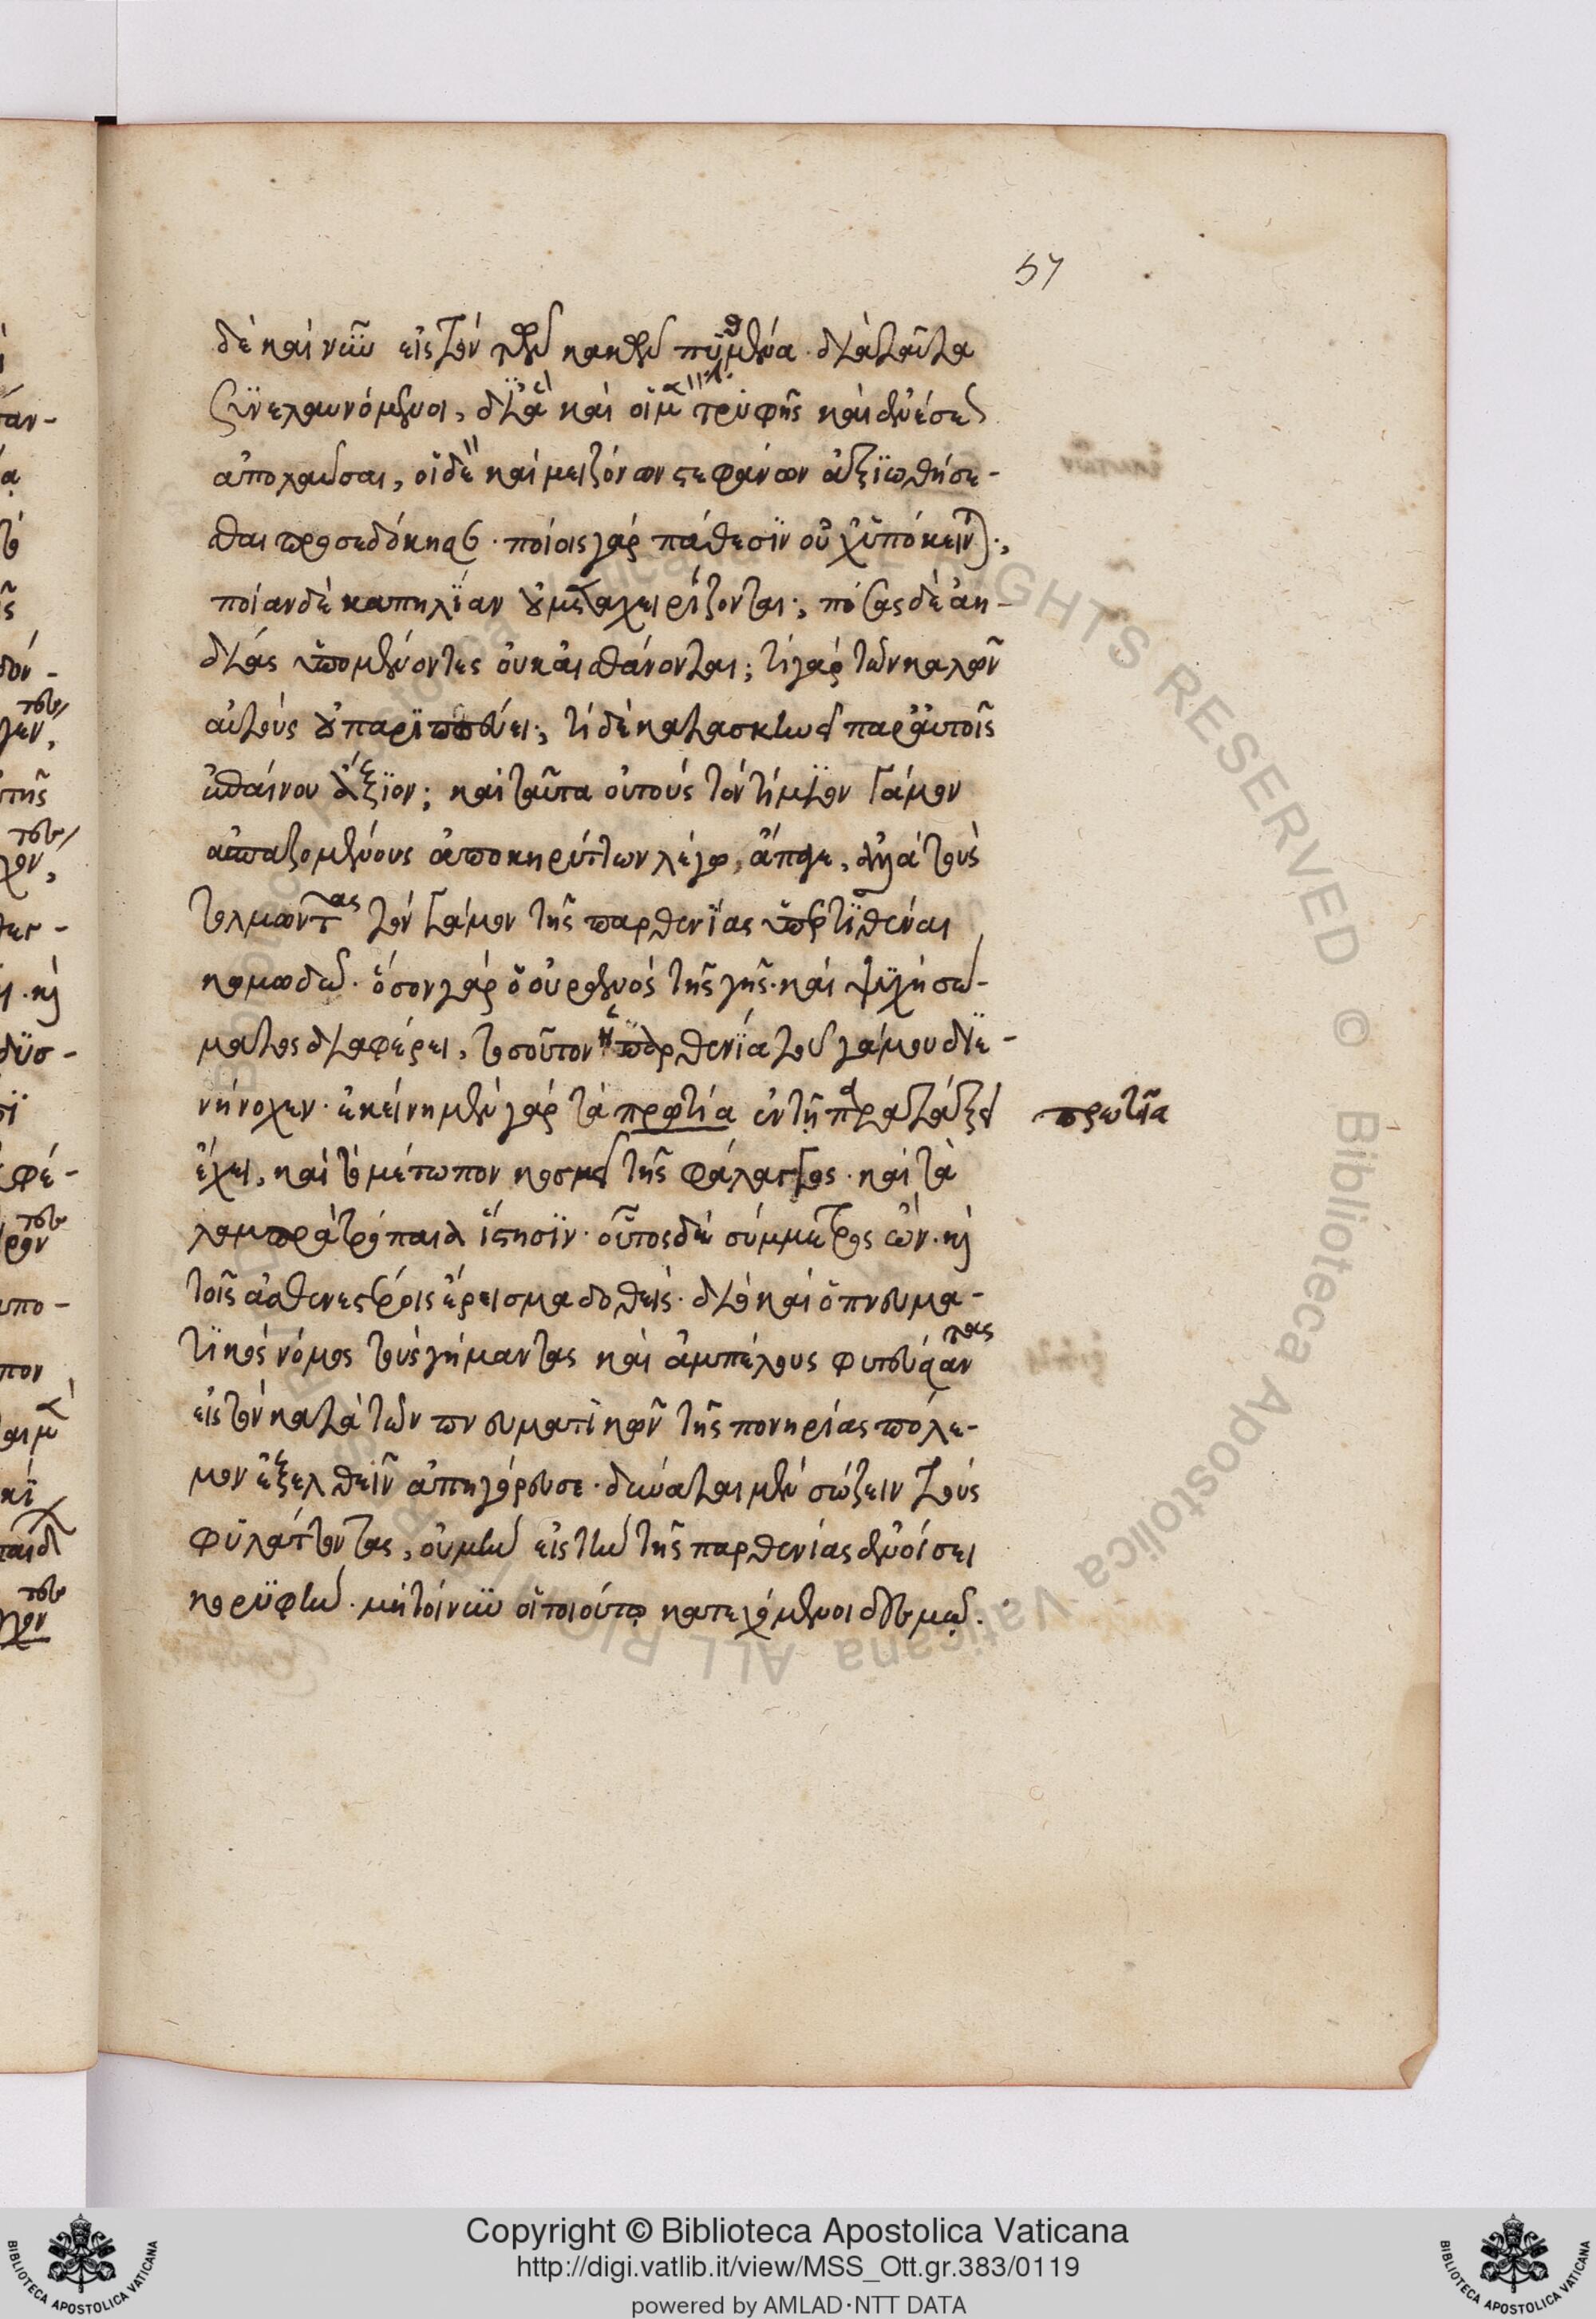 57
δὲ καὶ νῦν εἰς τὸν τῶν κακῶν πυθμένα. διὰ ταῦτα
συνελαυνόμενοι, διὰ καὶ οἱ μὲν τρυφῆς καὶ ἀνέσεως
ἀπολαῦσαι, οἱ δὲ καὶ μειζόνων στεφάνων ἀξιωθήσε-
σθαι προσεδόκησαν. ποίοις γὰρ πάθεσιν οὐχ ὑπόκεινται;
ποίαν δὲ καπηλίαν οὐ μεταχειρίζονται; πόσας δὲ ἀη-
δίας ὑπομένοντες οὐκ αἰσθάνονται; τί γὰρ τῶν καλῶν
αὐτοὺς οὐ παριππεύει; τί δὲ κατασκευῆς παρ' αὐτοῖς
ἐπαίνου ἄξιον; καὶ ταῦτα οὐ τοὺς τὸν τίμιον γάμον
ἀσπαζομένους ἀποκηρύττων λέγω, ἄπαγε, ἀλλὰ τοὺς
τολμῶντας τὸν γάμον τῆς παρθενίας ὑπερτιθέναι
κωμωδῶ. ὅσον γὰρ ὁ οὐρανὸς τῆς γῆς. καὶ ψυχὴ σώ-
ματος διαφέρει, τοσοῦτον ἡ παρθενία τοῦ γάμου διε-
νήνοχεν. ἐκείνη μὲν γὰρ τὰ πρωτία ἐν τῇ παρατάξει
πρωτεῖα
ἔχει, καὶ τὸ μέτωπον κοσμεῖ τῆς φάλαγγος. καὶ τὰ
λαμπρὰ τρόπαια ἵστησιν. οὗτος δὲ σύμμετρος ὤν. καὶ
τοῖς ἀσθενεστέροις ἔρεισμα δοθείς. διὸ καὶ ὁ πνευμα-
τικὸς νόμος τοὺς γήμαντας καὶ ἀμπέλους φυτεύσαντας
εἰς τὸν κατὰ τῶν πνευματικῶν τῆς πονηρίας πόλε-
μον ἐξελθεῖν ἀπηγόρευσε. δύναται μὲν σώζειν τοὺς
φυλάττοντας, οὐ μὴν εἰς τὴν τῆς παρθενίας ἀνοίσει
κορυφήν. μὴ τοίνυν οἱ τοιούτῳ κατεχόμενοι δεσμῷ.